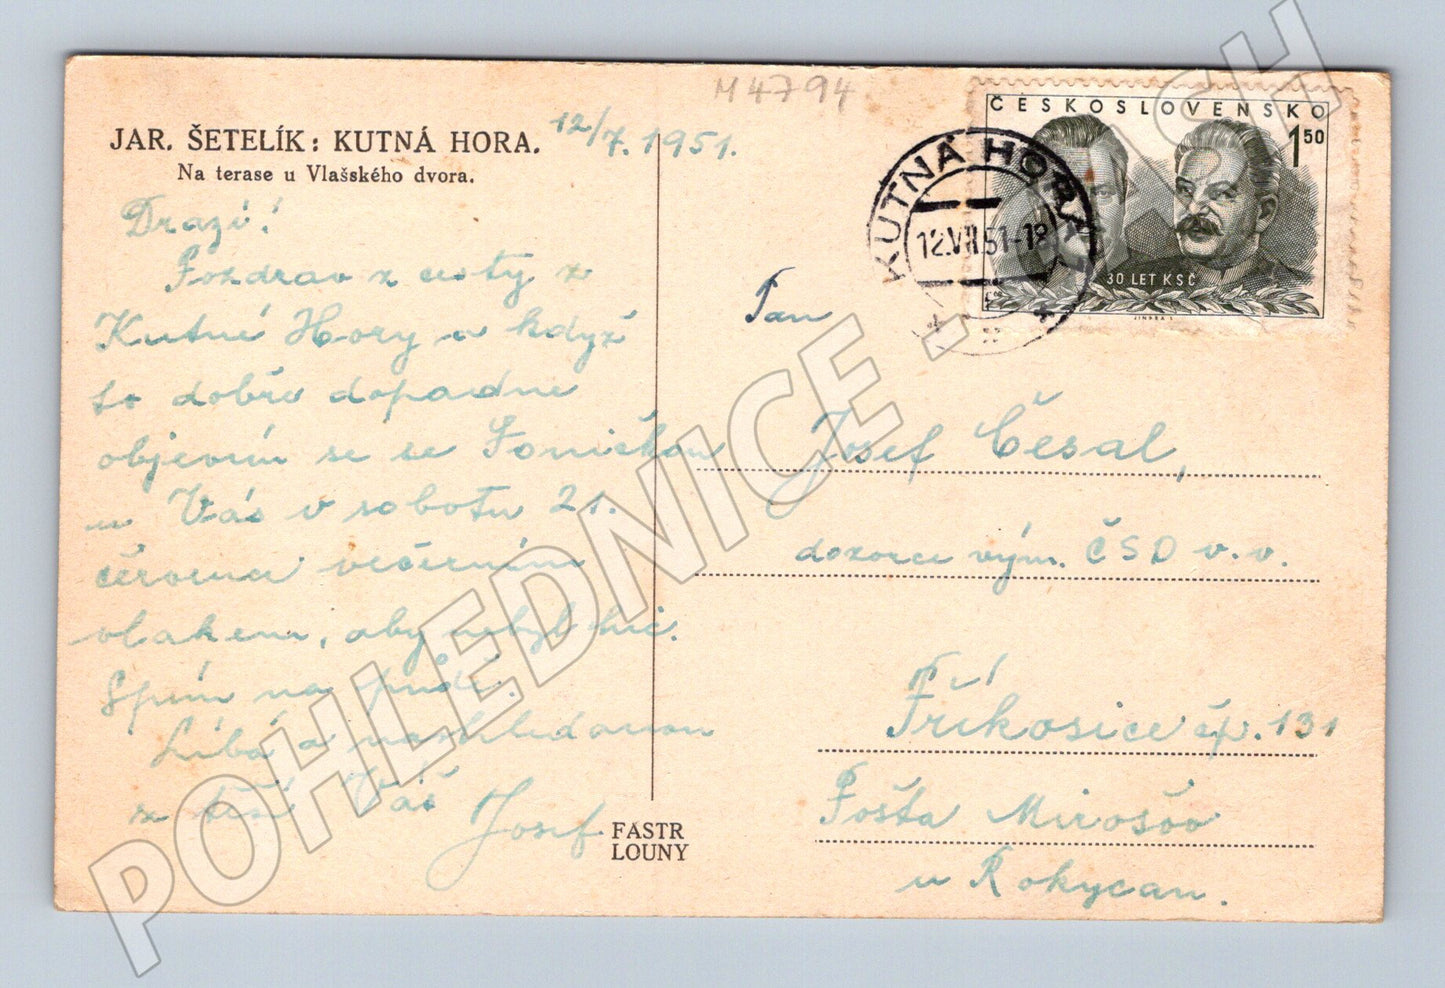 M 4794
JAR. ŠETELÍK: KUTNÁ HORA.
Na terase u Vlašského dvora.
12/7. 1951.
Drazí!
Pozdrav z cesty z
Kutné Hory a když
to dobře dopadne
objevím se se Toničkou
u Vás v sobotu 21.
července večerním
vlakem, aby nebyl hic.
Spím na půdě.
Líbá a nashledanou
se těší Váš
Josef
FASTR
LOUNY
ČESKOSLOVENSKO
1 50
30 LET KSČ
KUTNÁ HORA
12.VII.51-18
Pan
Josef Česal,
dozorce vým. ČSD v.v.
Příkosice čp. 131
Pošta Mirošov
u Rokycan.
POHLEDNICE